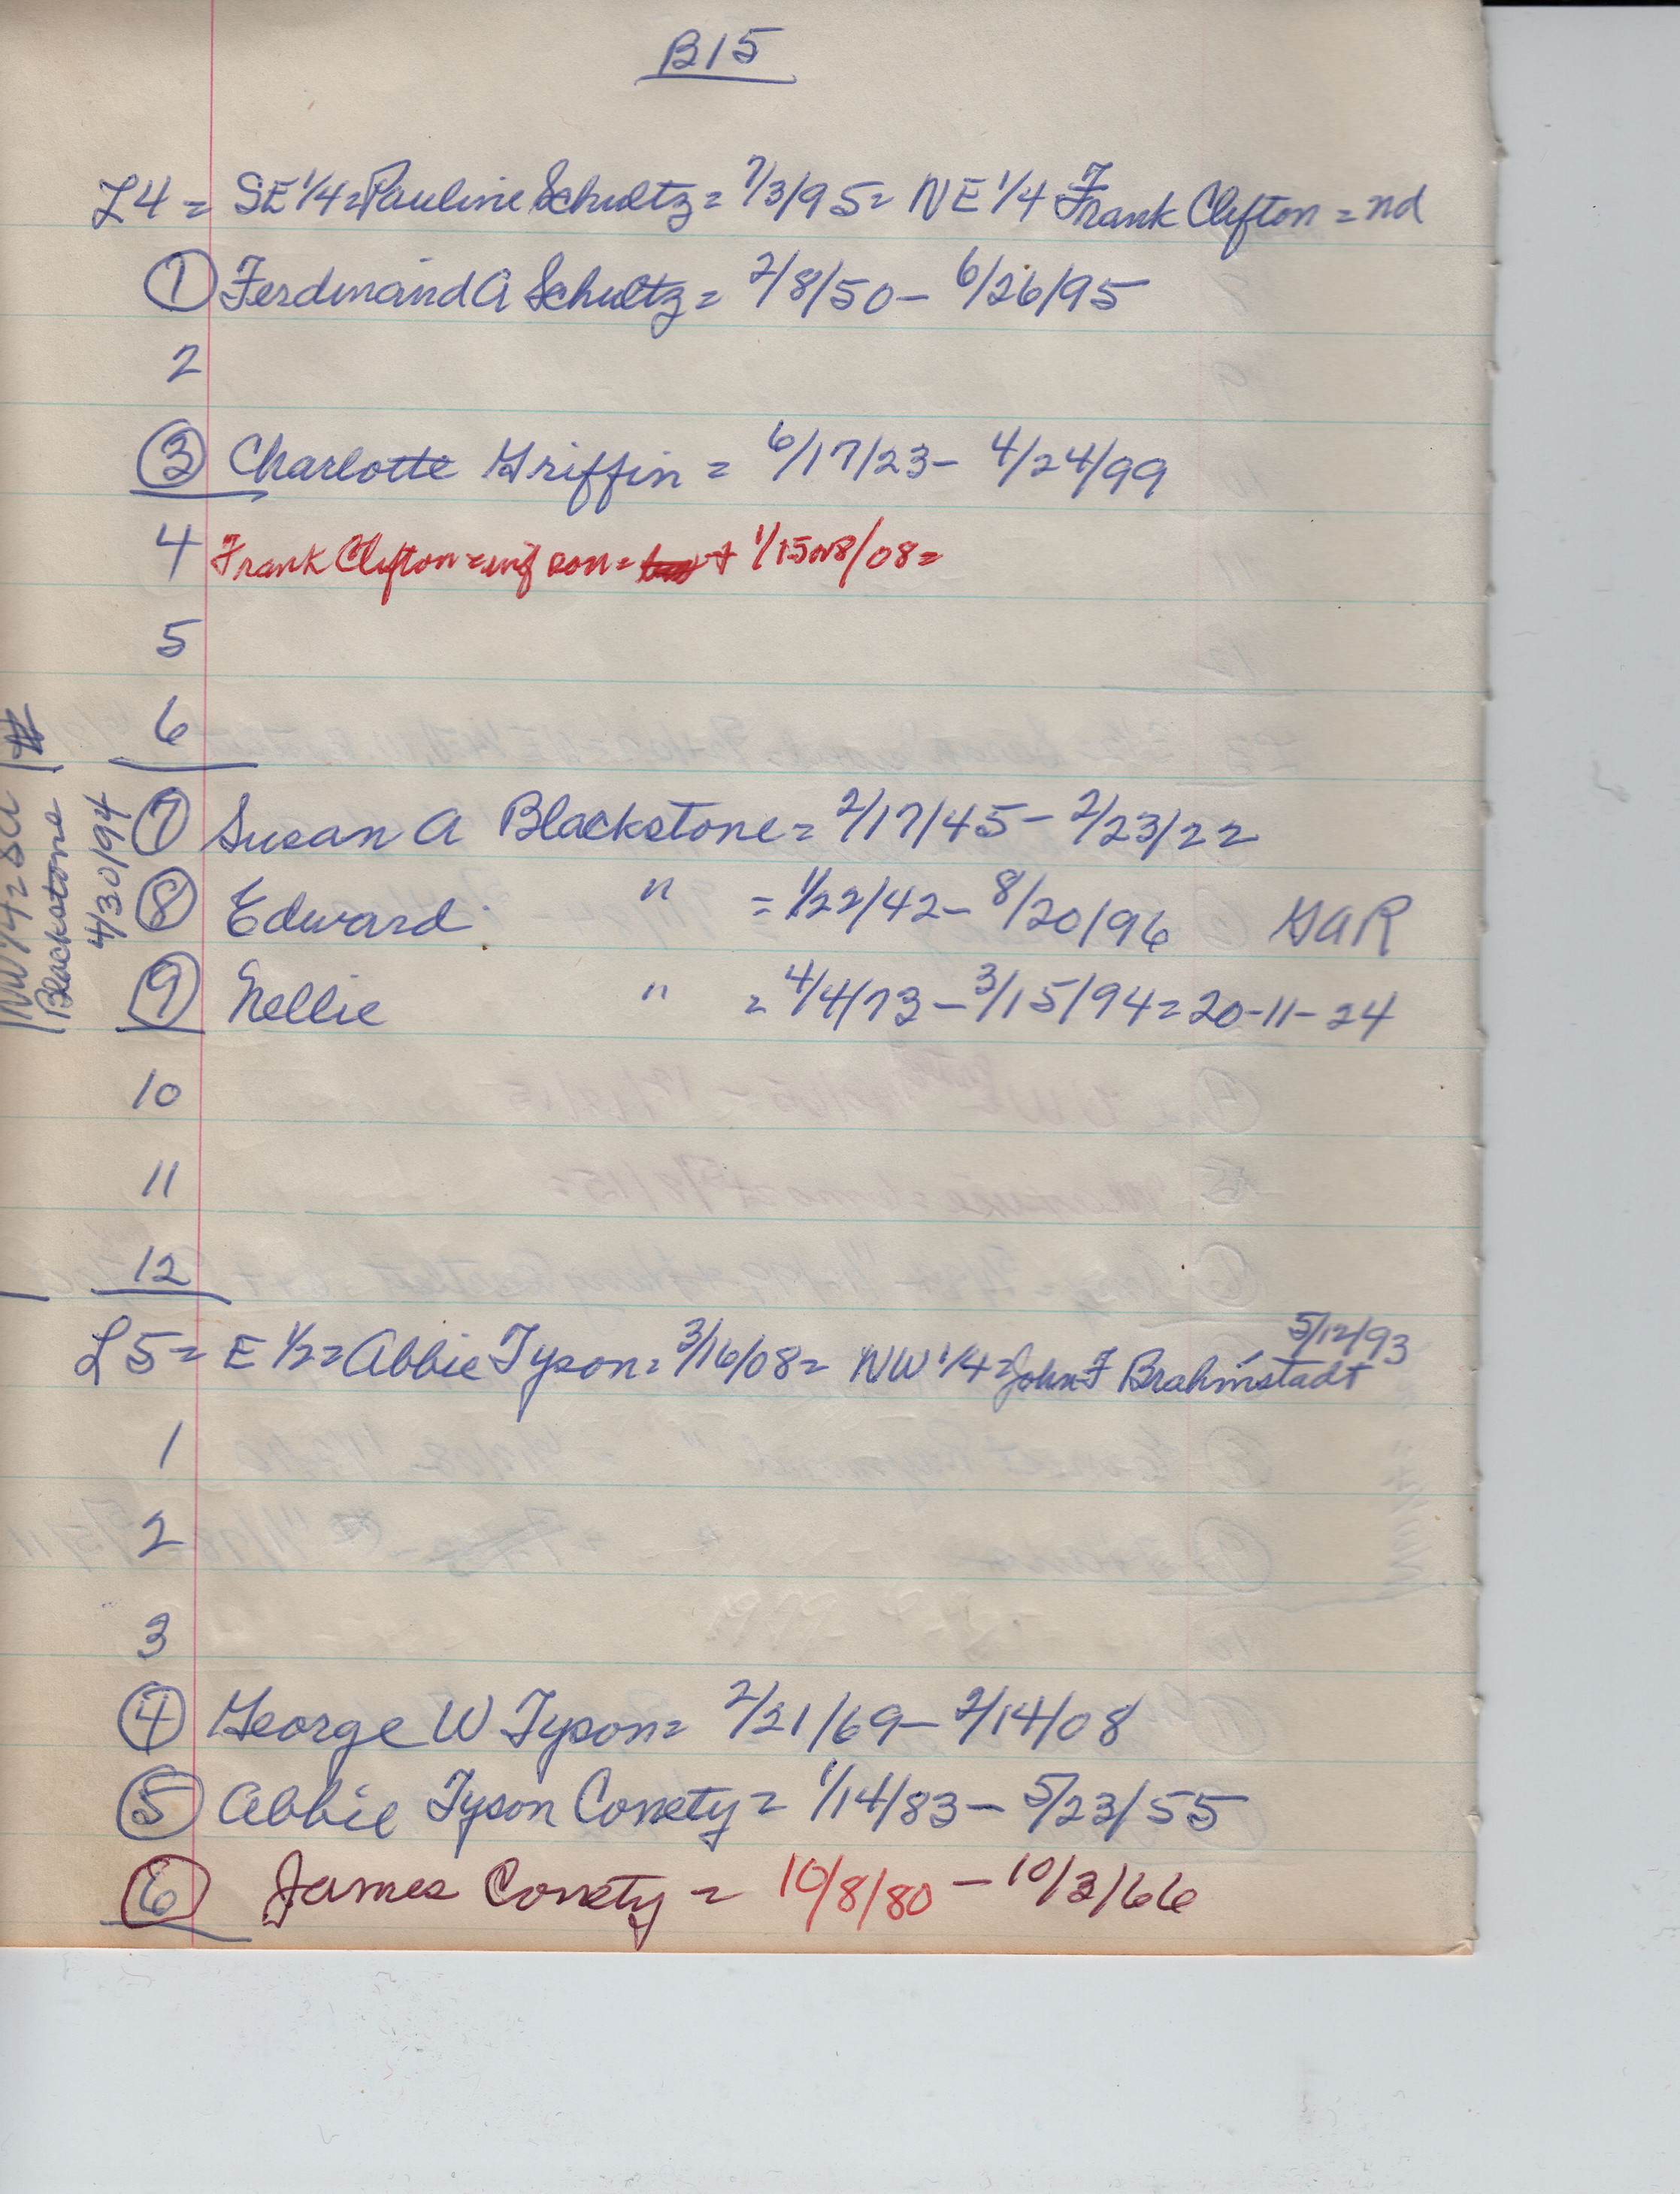 B15
L4 = SE 1/4 = Pauline Schultz = 7/3/95 = NE 1/4 Frank Clifton = nd
1 Ferdinand A Schultz = 2/8/50 - 6/26/95
2
3 Charlotte Griffin = 6/17/23 - 4/24/99
4 Frank Clifton = inf son = + 1/15 or 8/08 =
5
6
NW 1/4 = SA
Blackstone
4/30/94
7 Susan A Blackstone = 2/17/45 - 2/23/22
8 Edward " = 1/22/42 - 8/20/96 GAR
9 Nellie " = 4/4/73 - 3/15/94 = 20-11-24
10
11
12
5/12/93
L5 = E 1/2 = Abbie Tyson = 3/16/08 = NW 1/4 = John F Brahmstadt
1
2
3
4 George W Tyson = 2/21/69 - 2/14/08
5 Abbie Tyson Conety = 1/14/83 - 5/23/55
6 James Conety = 10/8/80 - 10/3/66